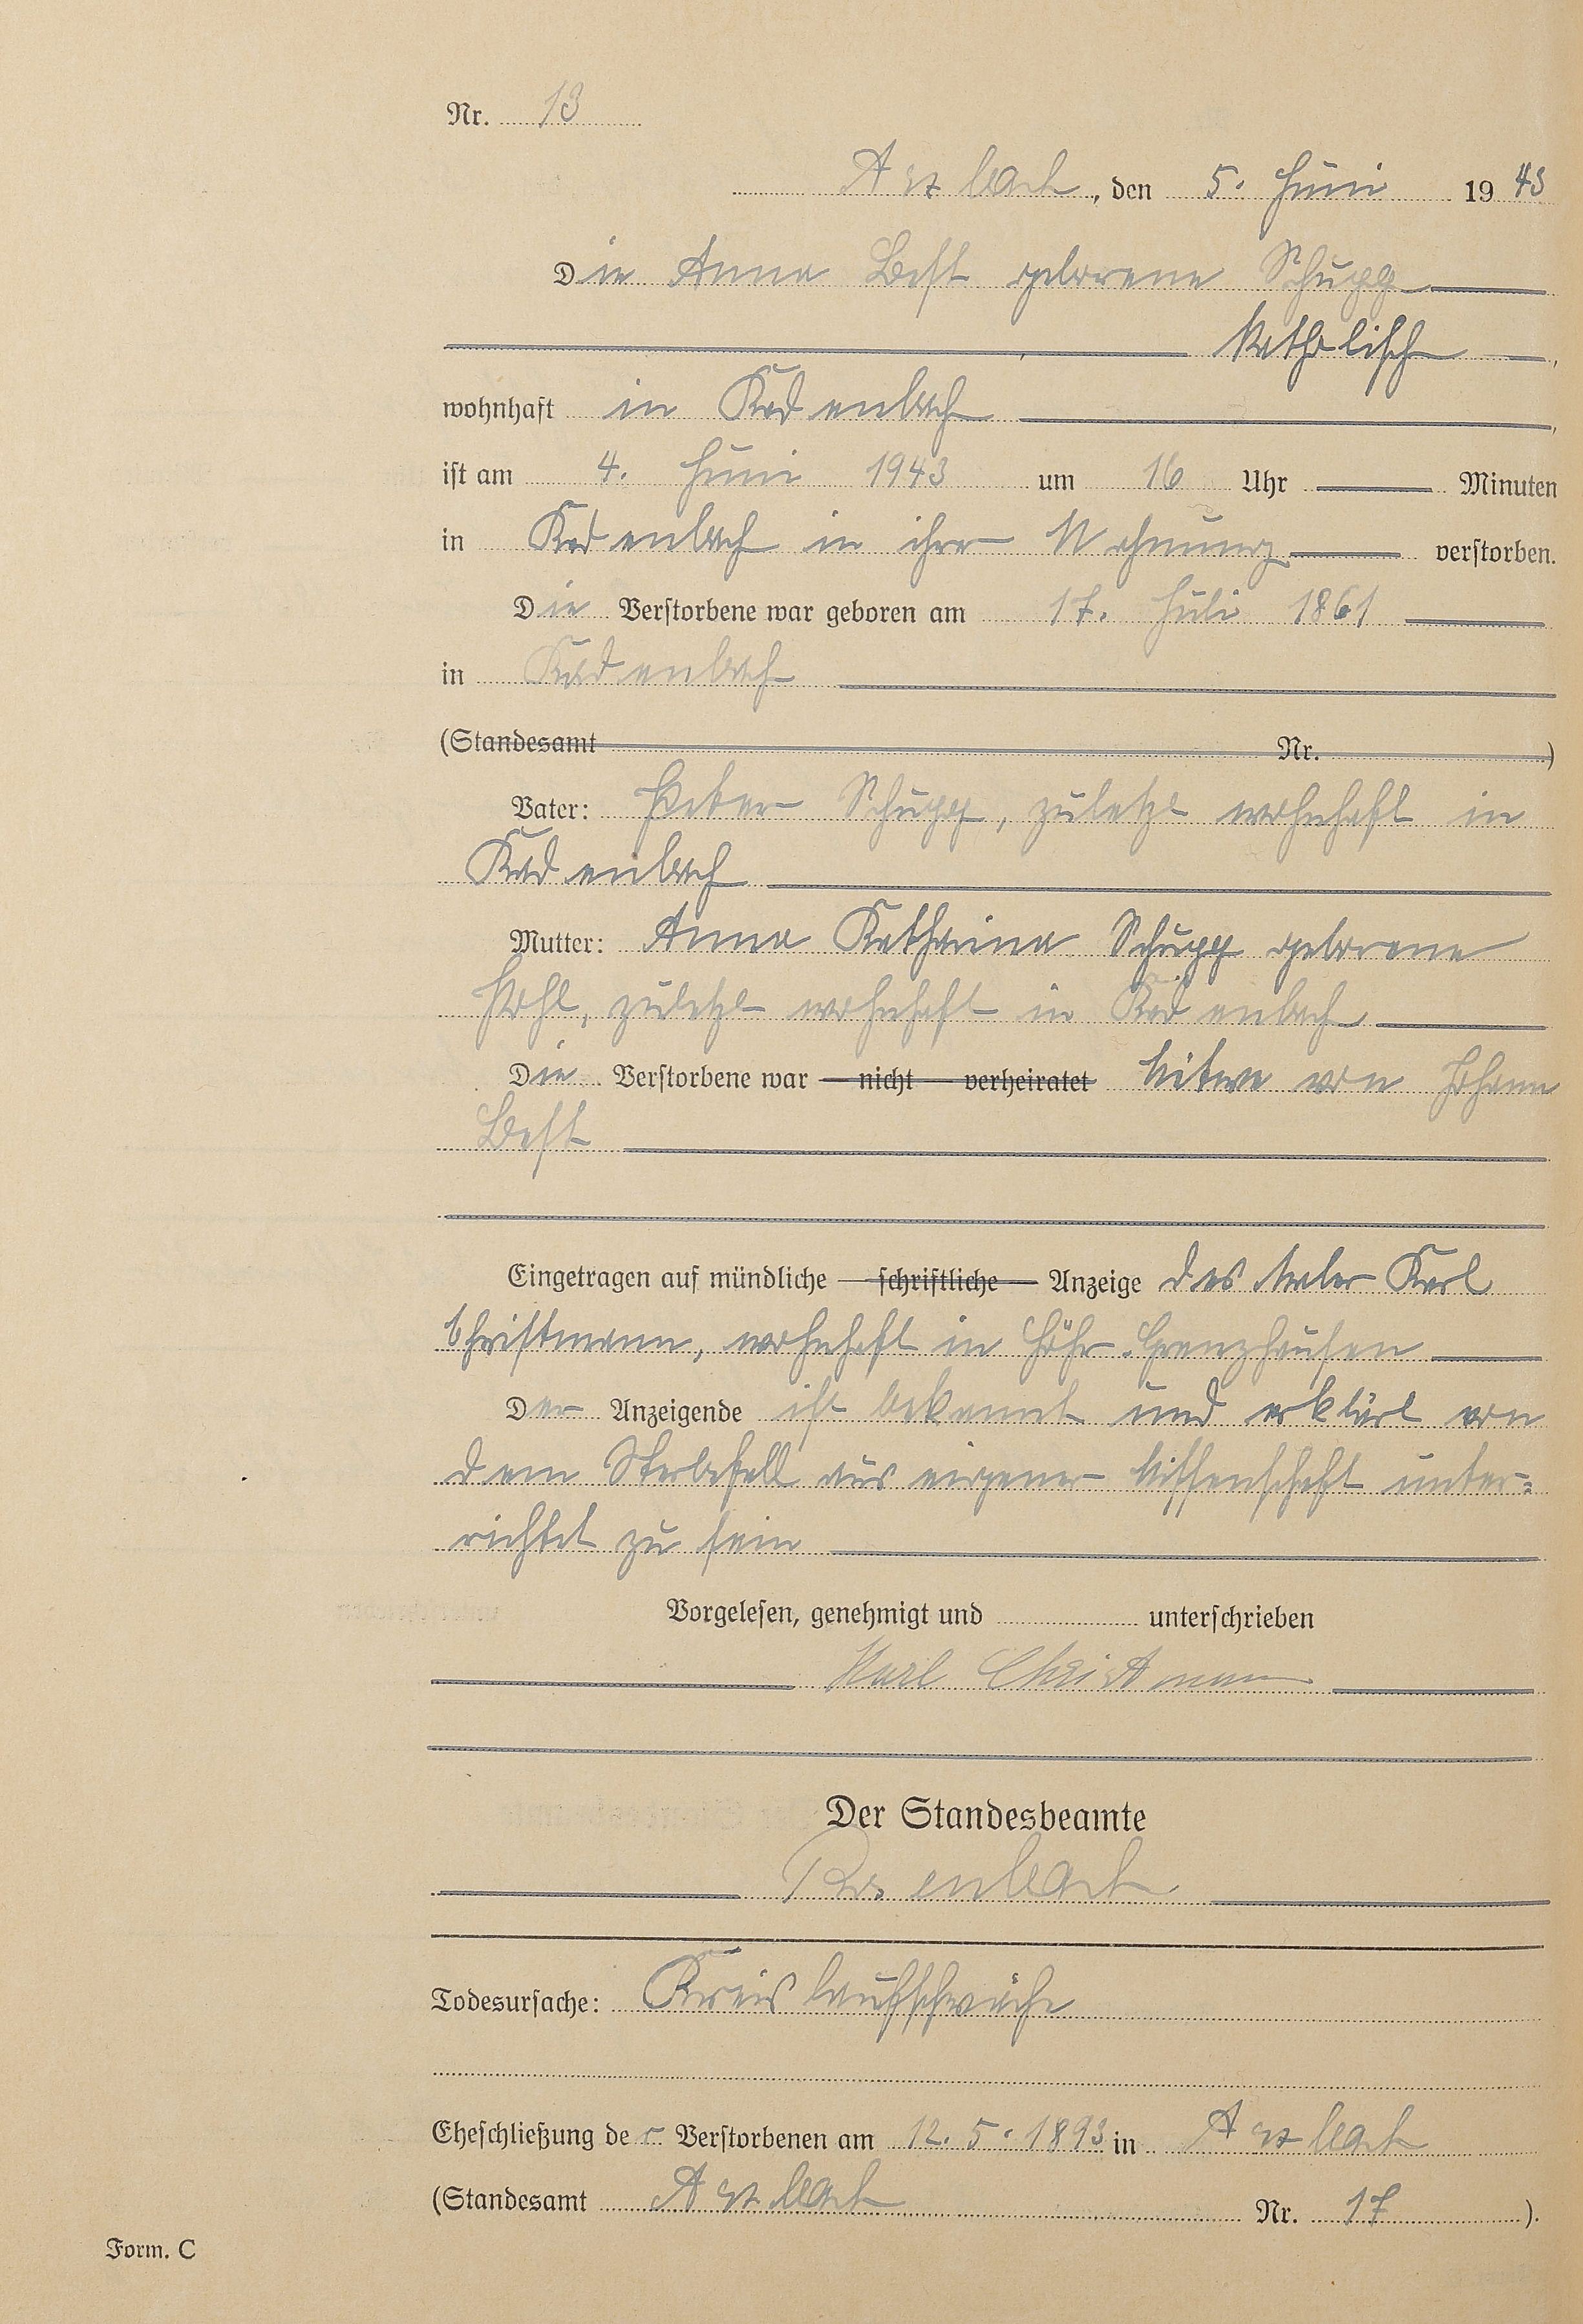 Nr. 13
Arzbach, den 5. Juni 1943
Die Anna Best geborene Schupp
katholisch,
wohnhaft in Kadenbach,
ist am 4. Juni 1943 um 16 Uhr Minuten
in Kadenbach in ihrer Wohnung verstorben.
Die Verstorbene war geboren am 17. Juli 1861
in Kadenbach
(Standesamt Nr. )
Vater: Peter Schupp, zuletzt wohnhaft in
Kadenbach
Mutter: Anna Katharina Schupp geborene
Pohl, zuletzt wohnhaft in Kadenbach
Die Verstorbene war nicht verheiratet Witwe von Johann
Best
Eingetragen auf mündliche schriftliche Anzeige des Karl
Christmann, wohnhaft in Höhr-Grenzhausen
Der Anzeigende ist bekannt und erklärt von
dem Sterbefall aus eigener Wissenschaft unter=
richtet zu sein
Vorgelesen, genehmigt und unterschrieben
Karl Christmann
Der Standesbeamte
Todesursache: Kreislaufschwäche
Eheschließung der Verstorbenen am 12.5.1893 in Arzbach
(Standesamt Arzbach Nr. 17 ).
Form. C